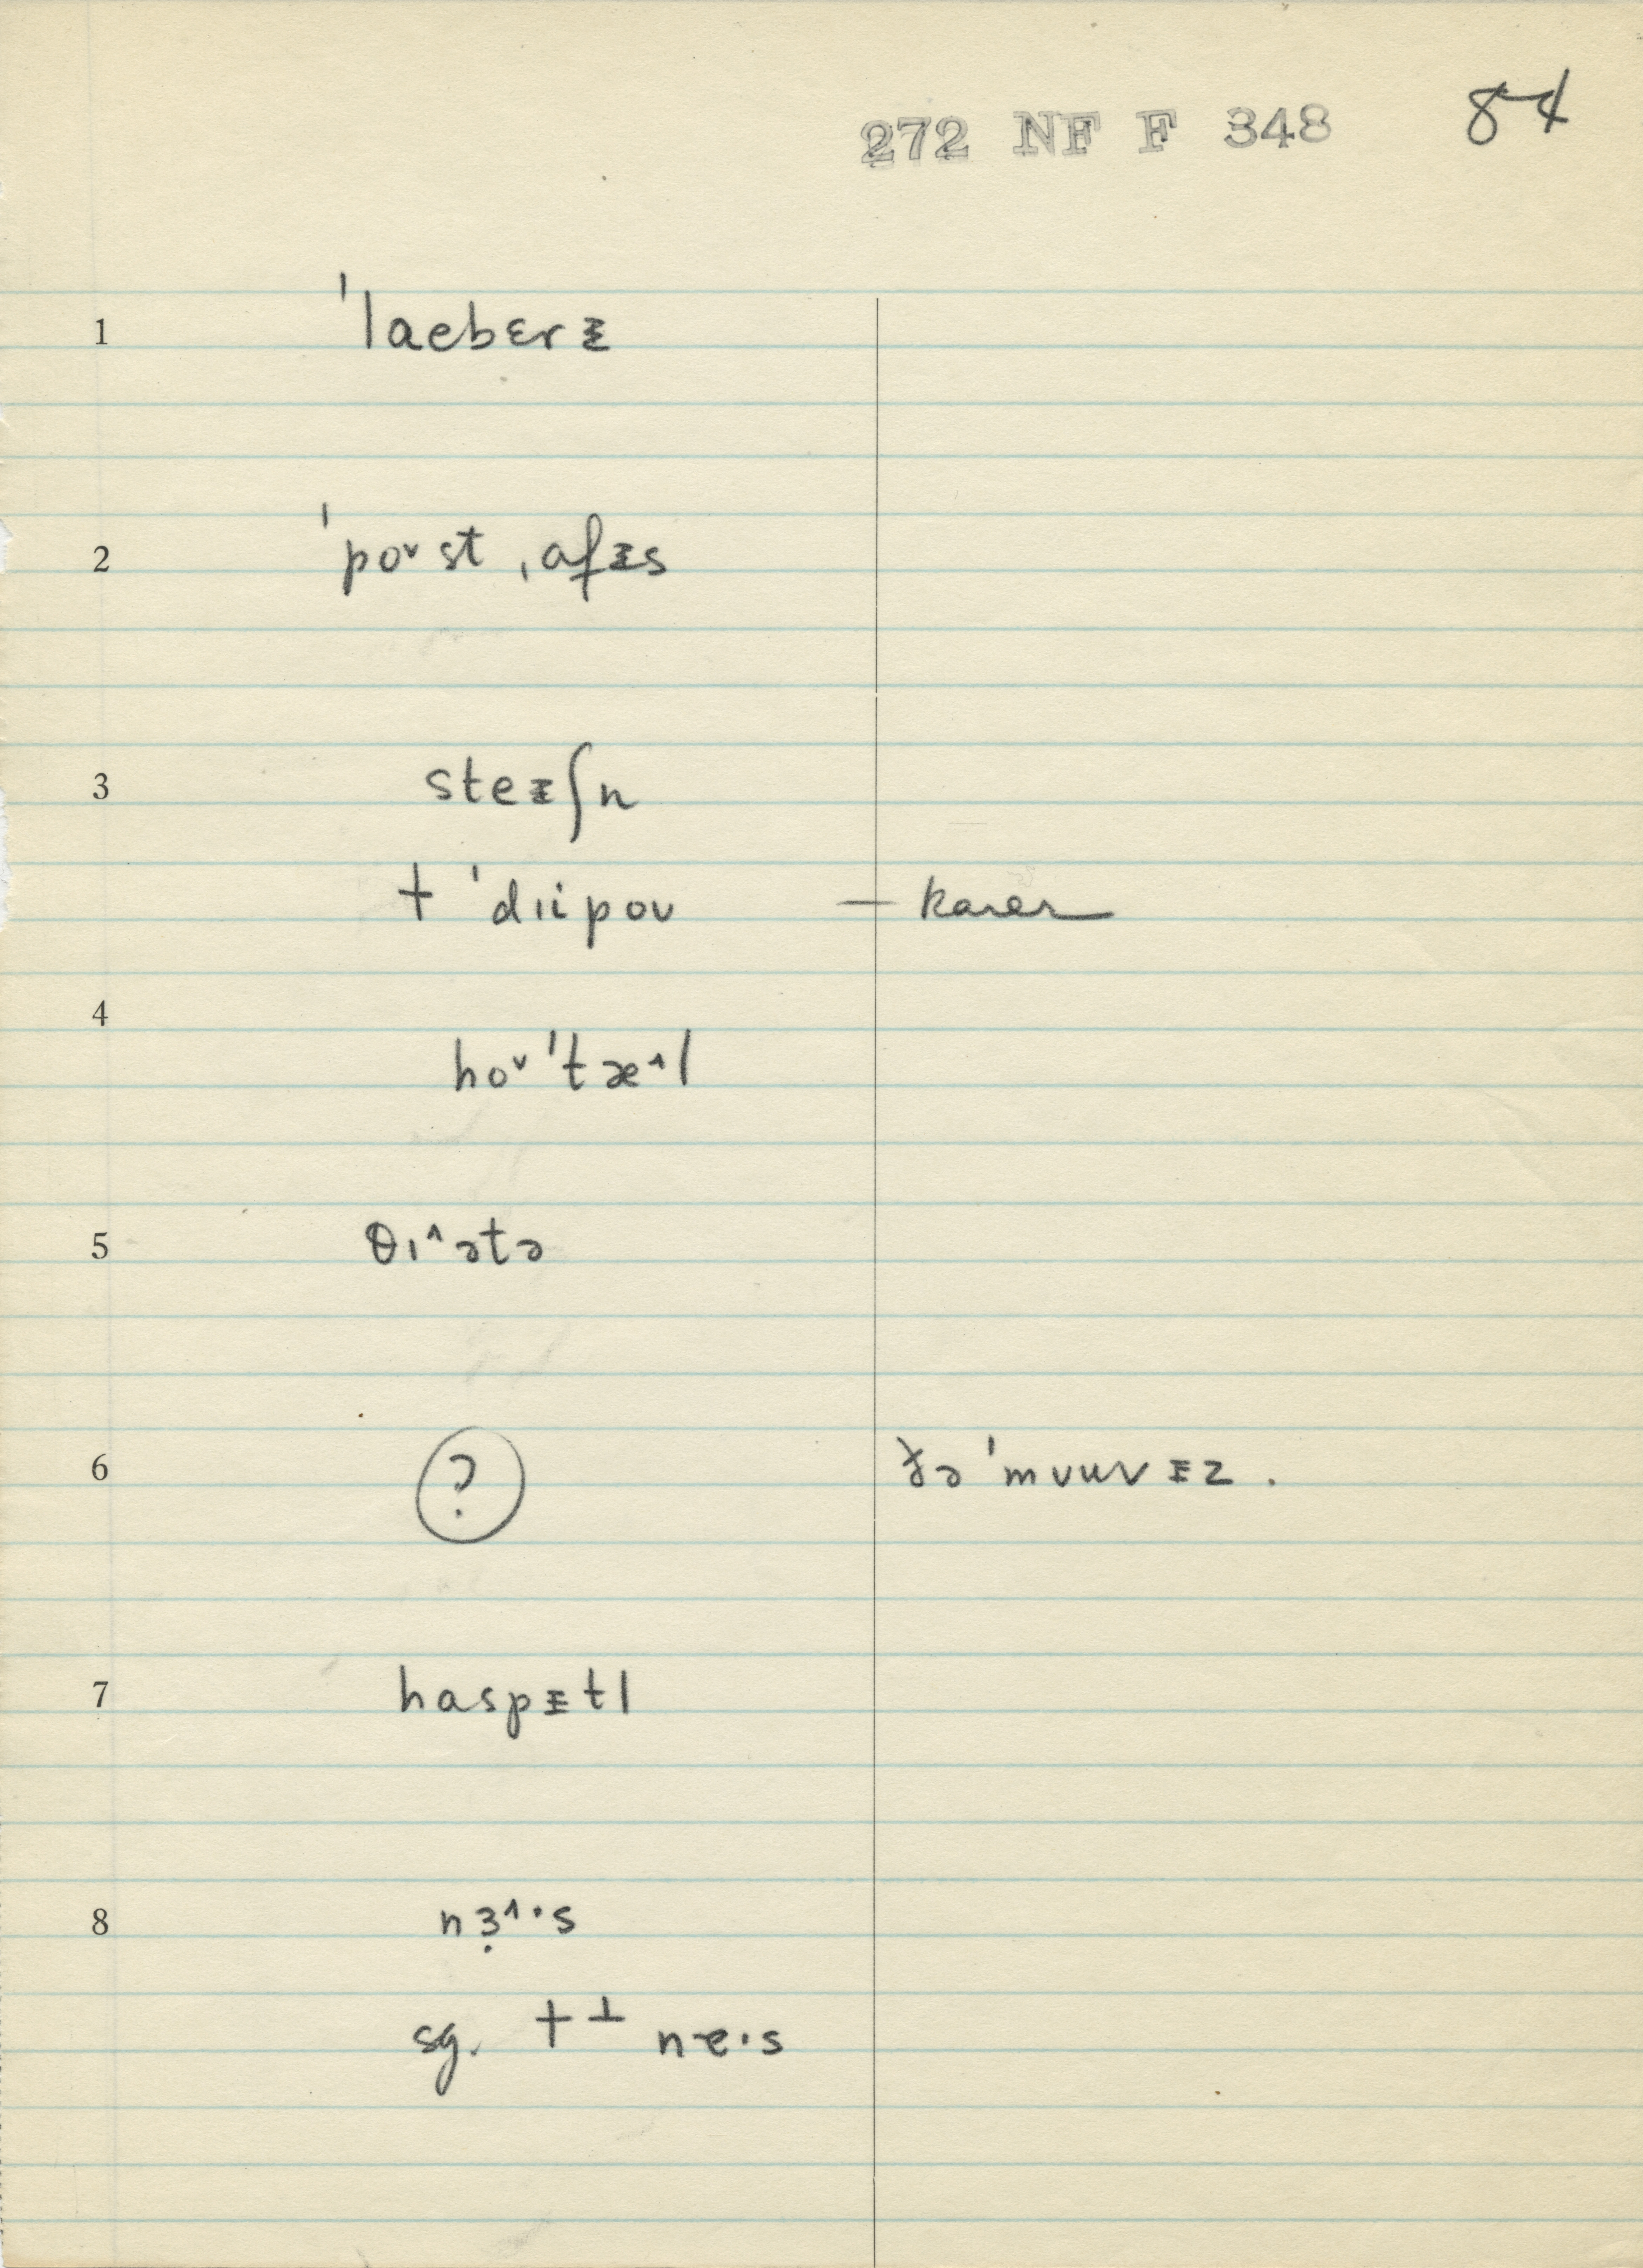 272 NF F 348 84
1 ˈlaebɛrᵻ
2 ˈpo˅st ˌafᵻs
3 steᵻʃn
+ ˈdɪipoʊ
4 ho˅ˈtæ˄l
5 θɪ˄ətə
6 ? ðə ˈmʊuvᵻz .
7 haspᵻtl
8 nɜ̣˄·s
sg. + ⊥ ne·s